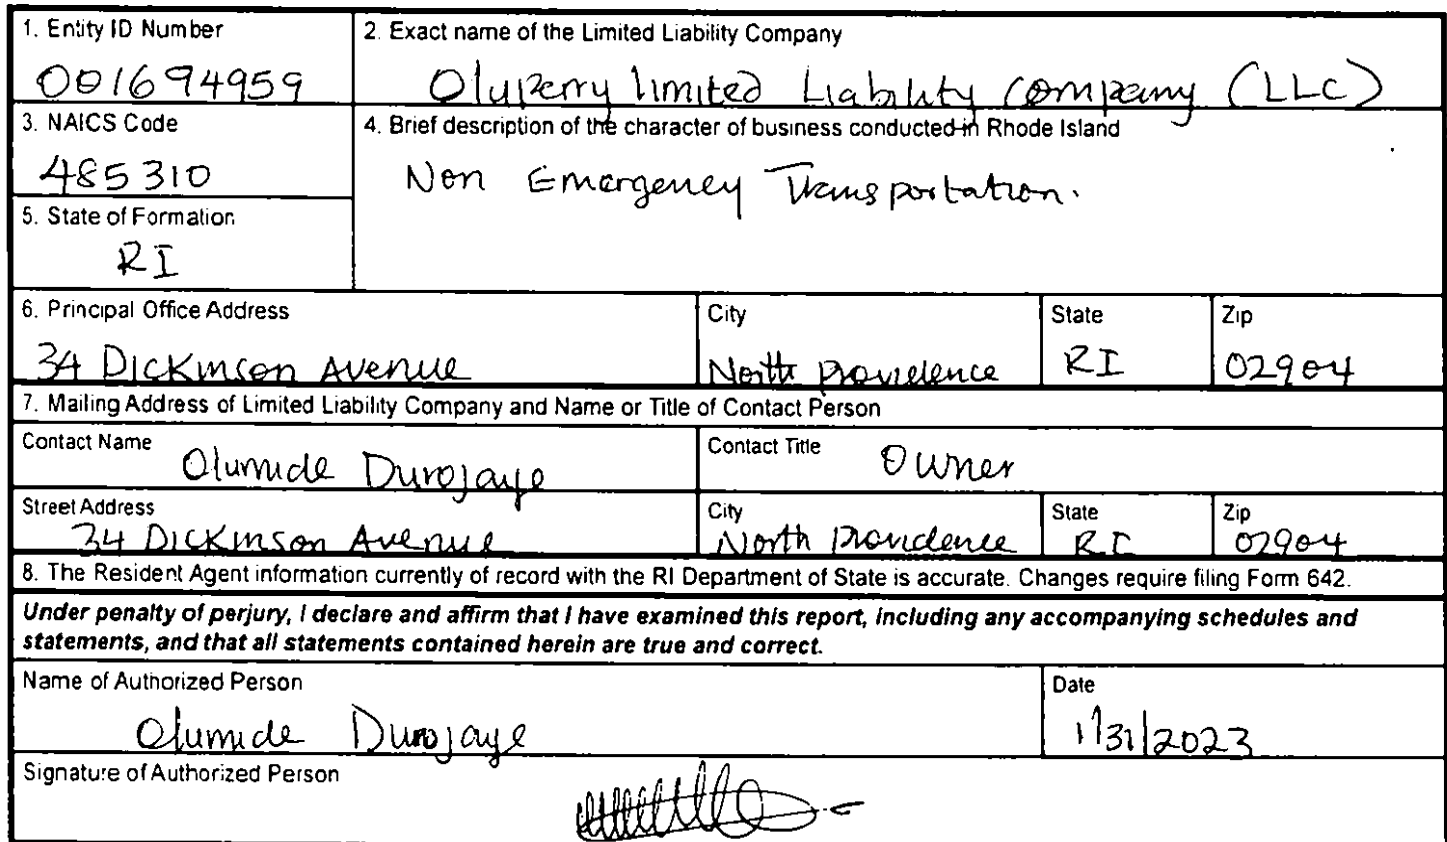 1. Entity ID Number
001694959
2. Exact name of the Limited Liability Company
Oluperry limited Liability Company (LLC)
3. NAICS Code
485310
4. Brief description of the character of business conducted in Rhode Island
Non Emergency Transportation.
5. State of Formation
RI
6. Principal Office Address
34 Dickinson Avenue
City
North Providence
State
RI
Zip
02904
7. Mailing Address of Limited Liability Company and Name or Title of Contact Person
Contact Name
Olumide Durojaye
Contact Title
Owner
Street Address
34 Dickinson Avenue
City
North Providence
State
RI
Zip
02904
8. The Resident Agent information currently of record with the RI Department of State is accurate. Changes require filing Form 642.
Under penalty of perjury, I declare and affirm that I have examined this report, including any accompanying schedules and
statements, and that all statements contained herein are true and correct.
Name of Authorized Person
Olumide Durojaye
Date
1/31/2023
Signature of Authorized Person